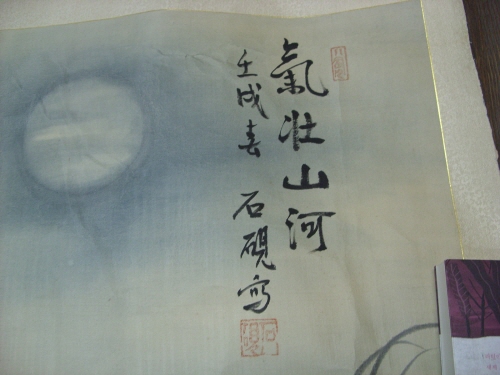 氣壯山河
壬戌春 石硯寫